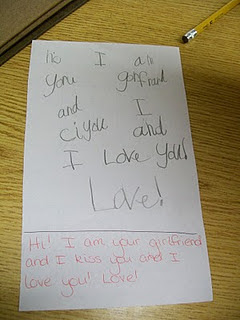 his I am
your gorlfrand
and I
ciyou and
I Love You!
Love!
Hi! I am your girlfriend
and I kiss you and I
love you! Love!